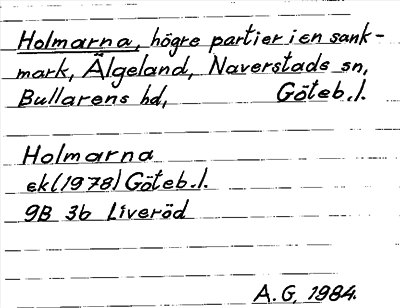 Holmarna, högre partier i en sank-
mark, Älgeland, Naverstads sn,
Bullarens hd, Göteb.l.
Holmarna
ek (1978) Göteb.l.
9B 3b Liveröd
A.G, 1984.